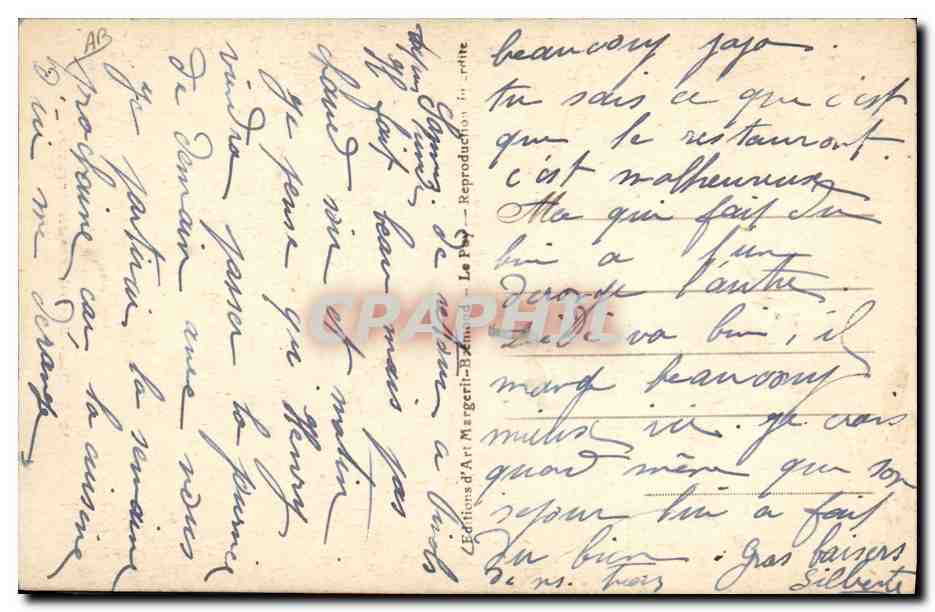 Nous sommes de retour a
Il fait beau mais pas
chaud soir et matin
Je pense qu Henry
viendra passer la journee
de demain avec nous
je partirai la semaine
prochaine car, la cuisine
d'ici me derange
beaucoup
tu sais ce que c'est
que le restaurant
c'est malheureux
qui fait du
bien a l'un
derange l'autre.
va bien, il
mange beaucoup
mieux ici. Je crois
quand même que son
sejour lui a fait
du bien. Gros baisers
de ns. trois
Gilberte
Editions d'Art Margerit-Brémond - Le Puy - Reproduction interdite
AB
CPAPHIL